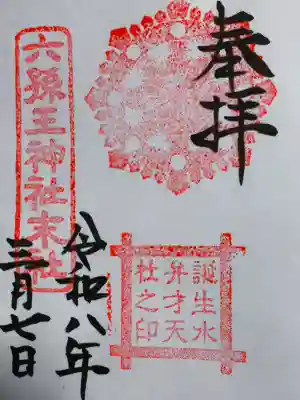 奉拝
誕生水
弁才天
社之印
六孫王神社末社
令和八年
三月七日